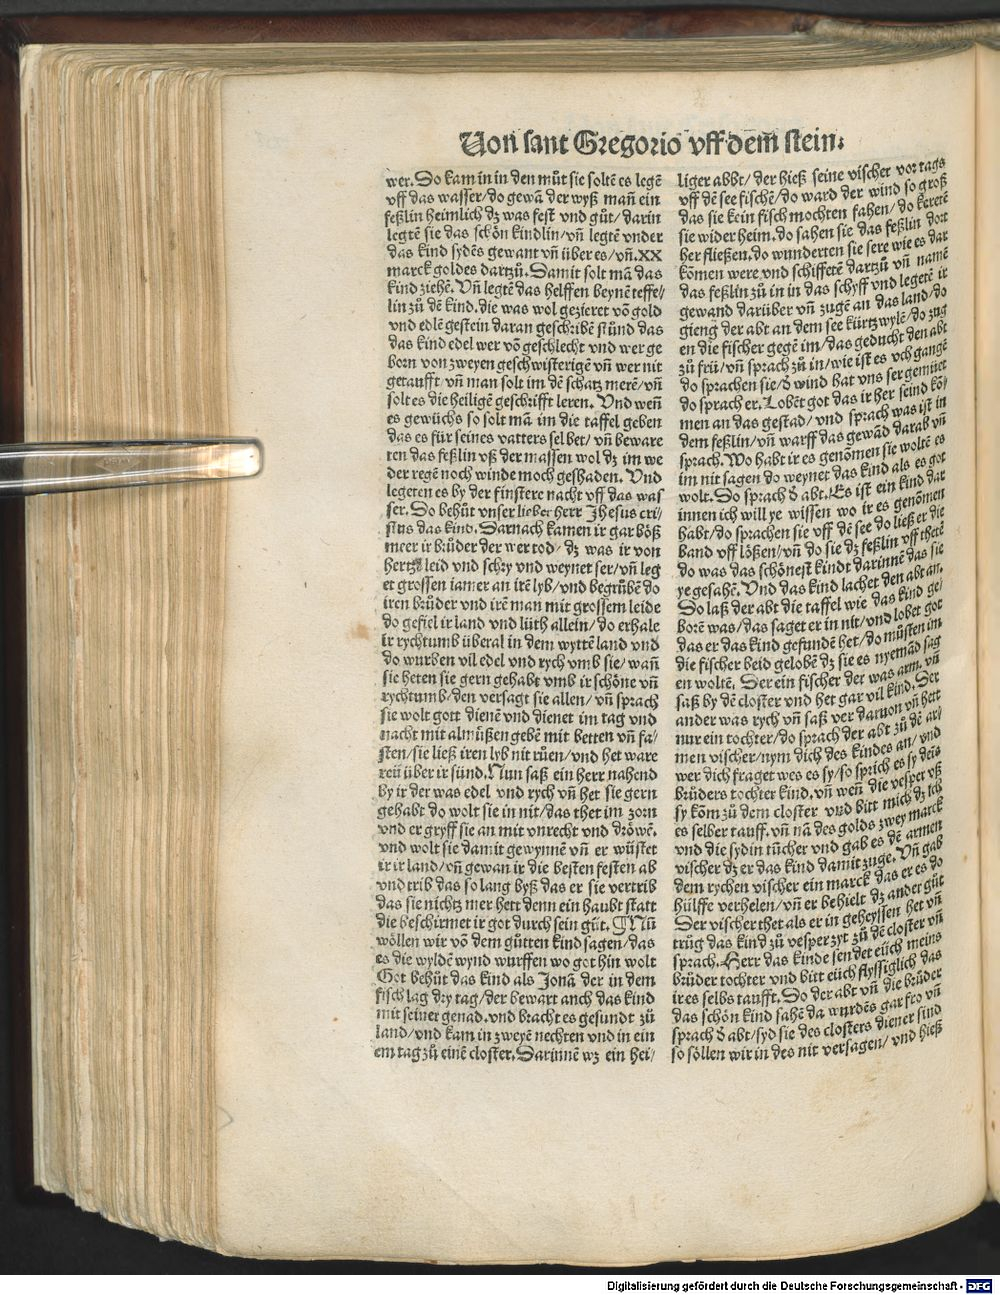 Von sant Gregorio vff dem̄ stein.
wer. Do kam in in den můt sie soltē es legē
vff das wasser/do gewā der wyß mañ ein
feßlin heimlich dz was fest vnd gůt/darin
legtē sie das schön kindlin/vñ legtē vnder
das kind sydēs gewant vñ über es/vñ. XX
marck goldes dartzů. Damit solt mā das
kind ziehē. Vñ legtē das helffen beynē teffe/
lin zů dē kind. die was wol gezieret vō gold
vnd edlē gestein daran geschribē stůnd das
das kind edel wer vō geschlecht vnd wer ge
born von zweyen geschwisterigē vñ wer nit
getaufft vñ man solt im dē schatz merē/vñ
solt es die heiligē geschrifft leren. Vnd weñ
es gewüchs so solt mā im die taffel geben
das es für seines vatters sel bet/vñ beware
ten das feßlin vß der massen wol dz im we
der regē noch winde moch geshaden. Vnd
legeten es by der finstere nacht vff das was
ser. Do behüt vnser lieber herr Jhesus cri/
stus das kind. Darnach kamen ir gar böß
meer ir brůder der wer tod/dz was ir von
hertzē leid vnd schry vnd weynet ser/vñ leg
et grossen iamer an irē lyb/vnd begrůbē do
iren brůder vnd irē man mit grossem leide
do gefiel ir land vnd lüth allein/do erhale
ir rychtumb überal in dem wyttē land vnd
do wurben vil edel vnd rych vmb sie/wañ
sie heten sie gern gehabt vmb ir schöne vñ
rychtumb/den versagt sie allen/vñ sprach
sie wolt gott dienē vnd dienet im tag vnd
nacht mit almůßen gebē mit betten vñ fa/
sten/sie ließ iren lyb nit růen/vnd het ware
reü über ir sünd. Nun saß ein herr nahend
by ir der was edel vnd rych vñ het sie gern
gehabt do wolt sie in nit/das thet im zorn
vnd er gryff sie an mit vnrecht vnd dröwē.
vnd wolt sie damit gewynnē vñ er wüstet
ir ir land/vñ gewan ir die besten festen ab
vnd trib das so lang byß das er sie vertrib
das sie nichtz mer hett denn ein haubt statt
die beschirmet ir got durch sein güt. ¶ Nū
wöllen wir vō dem gůtten kind sagen/das
es die wyldē wynd wurffen wo got hin wolt
Got behüt das kind als Jonā der in dem
fisch lag dry tag/der bewart auch das kind
mit seiner genad. vnd bracht es gesundt zů
land/vnd kam in zweyē nechten vnd in ein
em tag zů einē closter. Darinnē wz ein hei/
liger abbt/der hieß seine vischer vor tags
vff dē see fischē/do ward der wind so groß
das sie kein fisch mochten fahen/do kertē
sie wider heim. do sahen sie das feßlin dort
her fließen. do wunderten sie sere wie es dar
kōmen were vnd schiffetē dartzů vñ namē
das feßlin zů in in das schyff vnd legetē ir
gewand darüber vñ zugē an das land/do
gieng der abt an dem see kürtzwylē/do zug
en die fischer gegē im/das geducht den abt
zů frü/vñ sprach zů in/wie ist es vch gangē
do sprachen sie/d wind hat vns ser gemüet
do sprach er. Lobēt got das ir her seind kō/
men an das gestad/vnd sprach was ist in
dem feßlin/vñ warff das gewād darab vñ
sprach. Wo habt ir es genōmen sie wolte es
im nit sagen do weynet das kind als es got
wolt. Do sprach d abt. Es ist ein kind dar
innen ich will ye wissen wo ir es genōmen
habt/do sprachen sie vff dē see do ließ er die
band vff lößen/vñ do sie dz feßlin vff thetē
do was das schönest kindt darinnē das sie
ye gesahē. Vnd das kind lachet den abt an.
Do laß der abt die taffel wie das kind ge/
borē was/das saget er in nit/vnd lobet got
das er das kind gefundē het/do můsten im
die fischer beid gelobē dz sie es nyemād sag
en woltē. Der ein fischer der was arm. vñ
saß by dē closter vnd het gar vil kind. Der
ander was rych vñ saß ver daruon vñ hett
nur ein tochter/do sprach der abt zů dē ar/
men vischer/nym dich des kindes an/vnd
wer dich fraget wes es sy/so sprich es sy deīs
brůders tochter kind. vñ weñ die vesper vß
sy kōm zů dem closter vnd bitt mich dz ich
es selber tauff. vñ nā des golds zwey marck
vnd die sydin tücher vnd gab es dē armen
vischer dz er das kind damit zuge. Vñ gab
dem rychen vischer ein marck das er es do
hülffe verhelen/vñ er behielt dz ander gůt
Der vischer thet als er in geheyssen het vñ
trůg das kind zů vesper zyt zů dē closter vñ
sprach. Herr das kinde sendet eüch meins
brůder tochter vnd bitt eüch flyssiglich das
ir es selbs taufft. Do der abt vñ die brůder
das schön kind sahē da wurdēs gar fro vñ
sprach d abt/syd sie des closters diener sind
so söllen wir in des nit versagen/vnd hieß
Digitalisierung gefördert durch die Deutsche Forschungsgemeinschaft - DFG